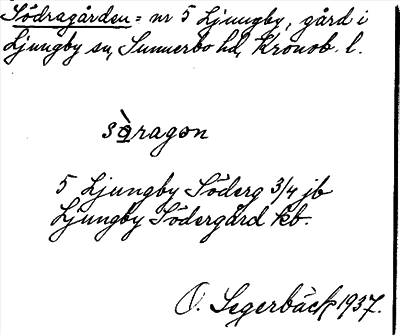 Södragården = nr 5 Ljungby, gård i
Ljungby sn, Sunnerbo hd, Kronob. l.
sò̱ragon
5 Ljungby Söderg 3/4 jb
Ljungby Södergård kb.
O. Segerbäck 1937.